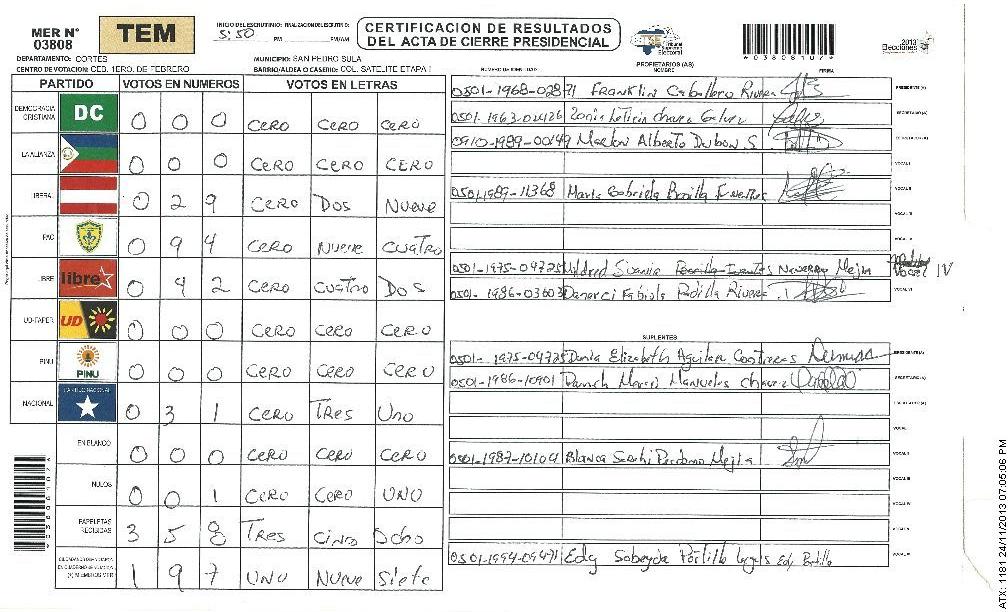 MER N° 03808
TEM
INICIO DEL ESCRUTINIO: FINALIZACION DEL ESCRUTINIO:
5:50 PM PM/AM
CERTIFICACION DE RESULTADOS
DEL ACTA DE CIERRE PRESIDENCIAL
TSE Tribunal Supremo Electoral
*03808107*
2013 Elecciones
DEPARTAMENTO: CORTES
MUNICIPIO: SAN PEDRO SULA
CENTRO DE VOTACION: CEB. 1ERO. DE FEBRERO
BARRIO/ALDEA O CASERIO: COL. SATELITE ETAPA I
NUMERO DE IDENTIDAD
PROPIETARIOS (AS)
NOMBRE
FIRMA
PARTIDO VOTOS EN NUMEROS VOTOS EN LETRAS
DEMOCRACIA CRISTIANA DC 0 0 0 CERO CERO CERO
LA ALIANZA 0 0 0 CERO CERO CERO
LIBERAL 0 2 9 CERO DOS NUEVE
PAC 0 9 4 CERO NUEVE CUATRO
LIBRE libre 0 42 CERO CUATRO DOS
UD-FAPER UD 0 0 0 CERO CERO CERO
PINU PINU 0 0 0 CERO CERO CERO
NACIONAL PARTIDO NACIONAL 0 3 1 CERO TRES UNO
EN BLANCO 0 0 0 CERO CERO CERO
NULOS 0 0 1 CERO CERO UNO
PAPELETAS RECIBIDAS 3 5 8 TRES CINCO OCHO
1 9 7 UNO NUEVE SIETE
0501-1968-02871 Franklin Caballero Rivera PRESIDENTE (A)
0501-1963-02426 SECRETARIO (A)
0910-1989-00149 Marlon Alberto Dubon S.
VOCAL I
0501-1989-11368 Maria Gabriela Bonilla VOCAL II
VOCAL III
0501-1975-04725 Mildred Navarro Mejia Vocal IV
0501-1986-03603 Padilla Rivera VOCAL VI
SUPLENTES
0501-1975-04725 Dunia Elizabeth Aguilar Contreras PRESIDENTE (A)
0501-1986-10901 Manueles Chavez SECRETARIO (A)
ESCRUTADOR (A)
VOCAL I
0501-1987-10104 Blanca Perdomo Mejia VOCAL II
VOCAL III
VOCAL IV
VOCAL V
0501-1994-09491 Edy Sobeyda Portillo Edy Portillo
ATX: 1181 24/11/2013 07:05:06 PM